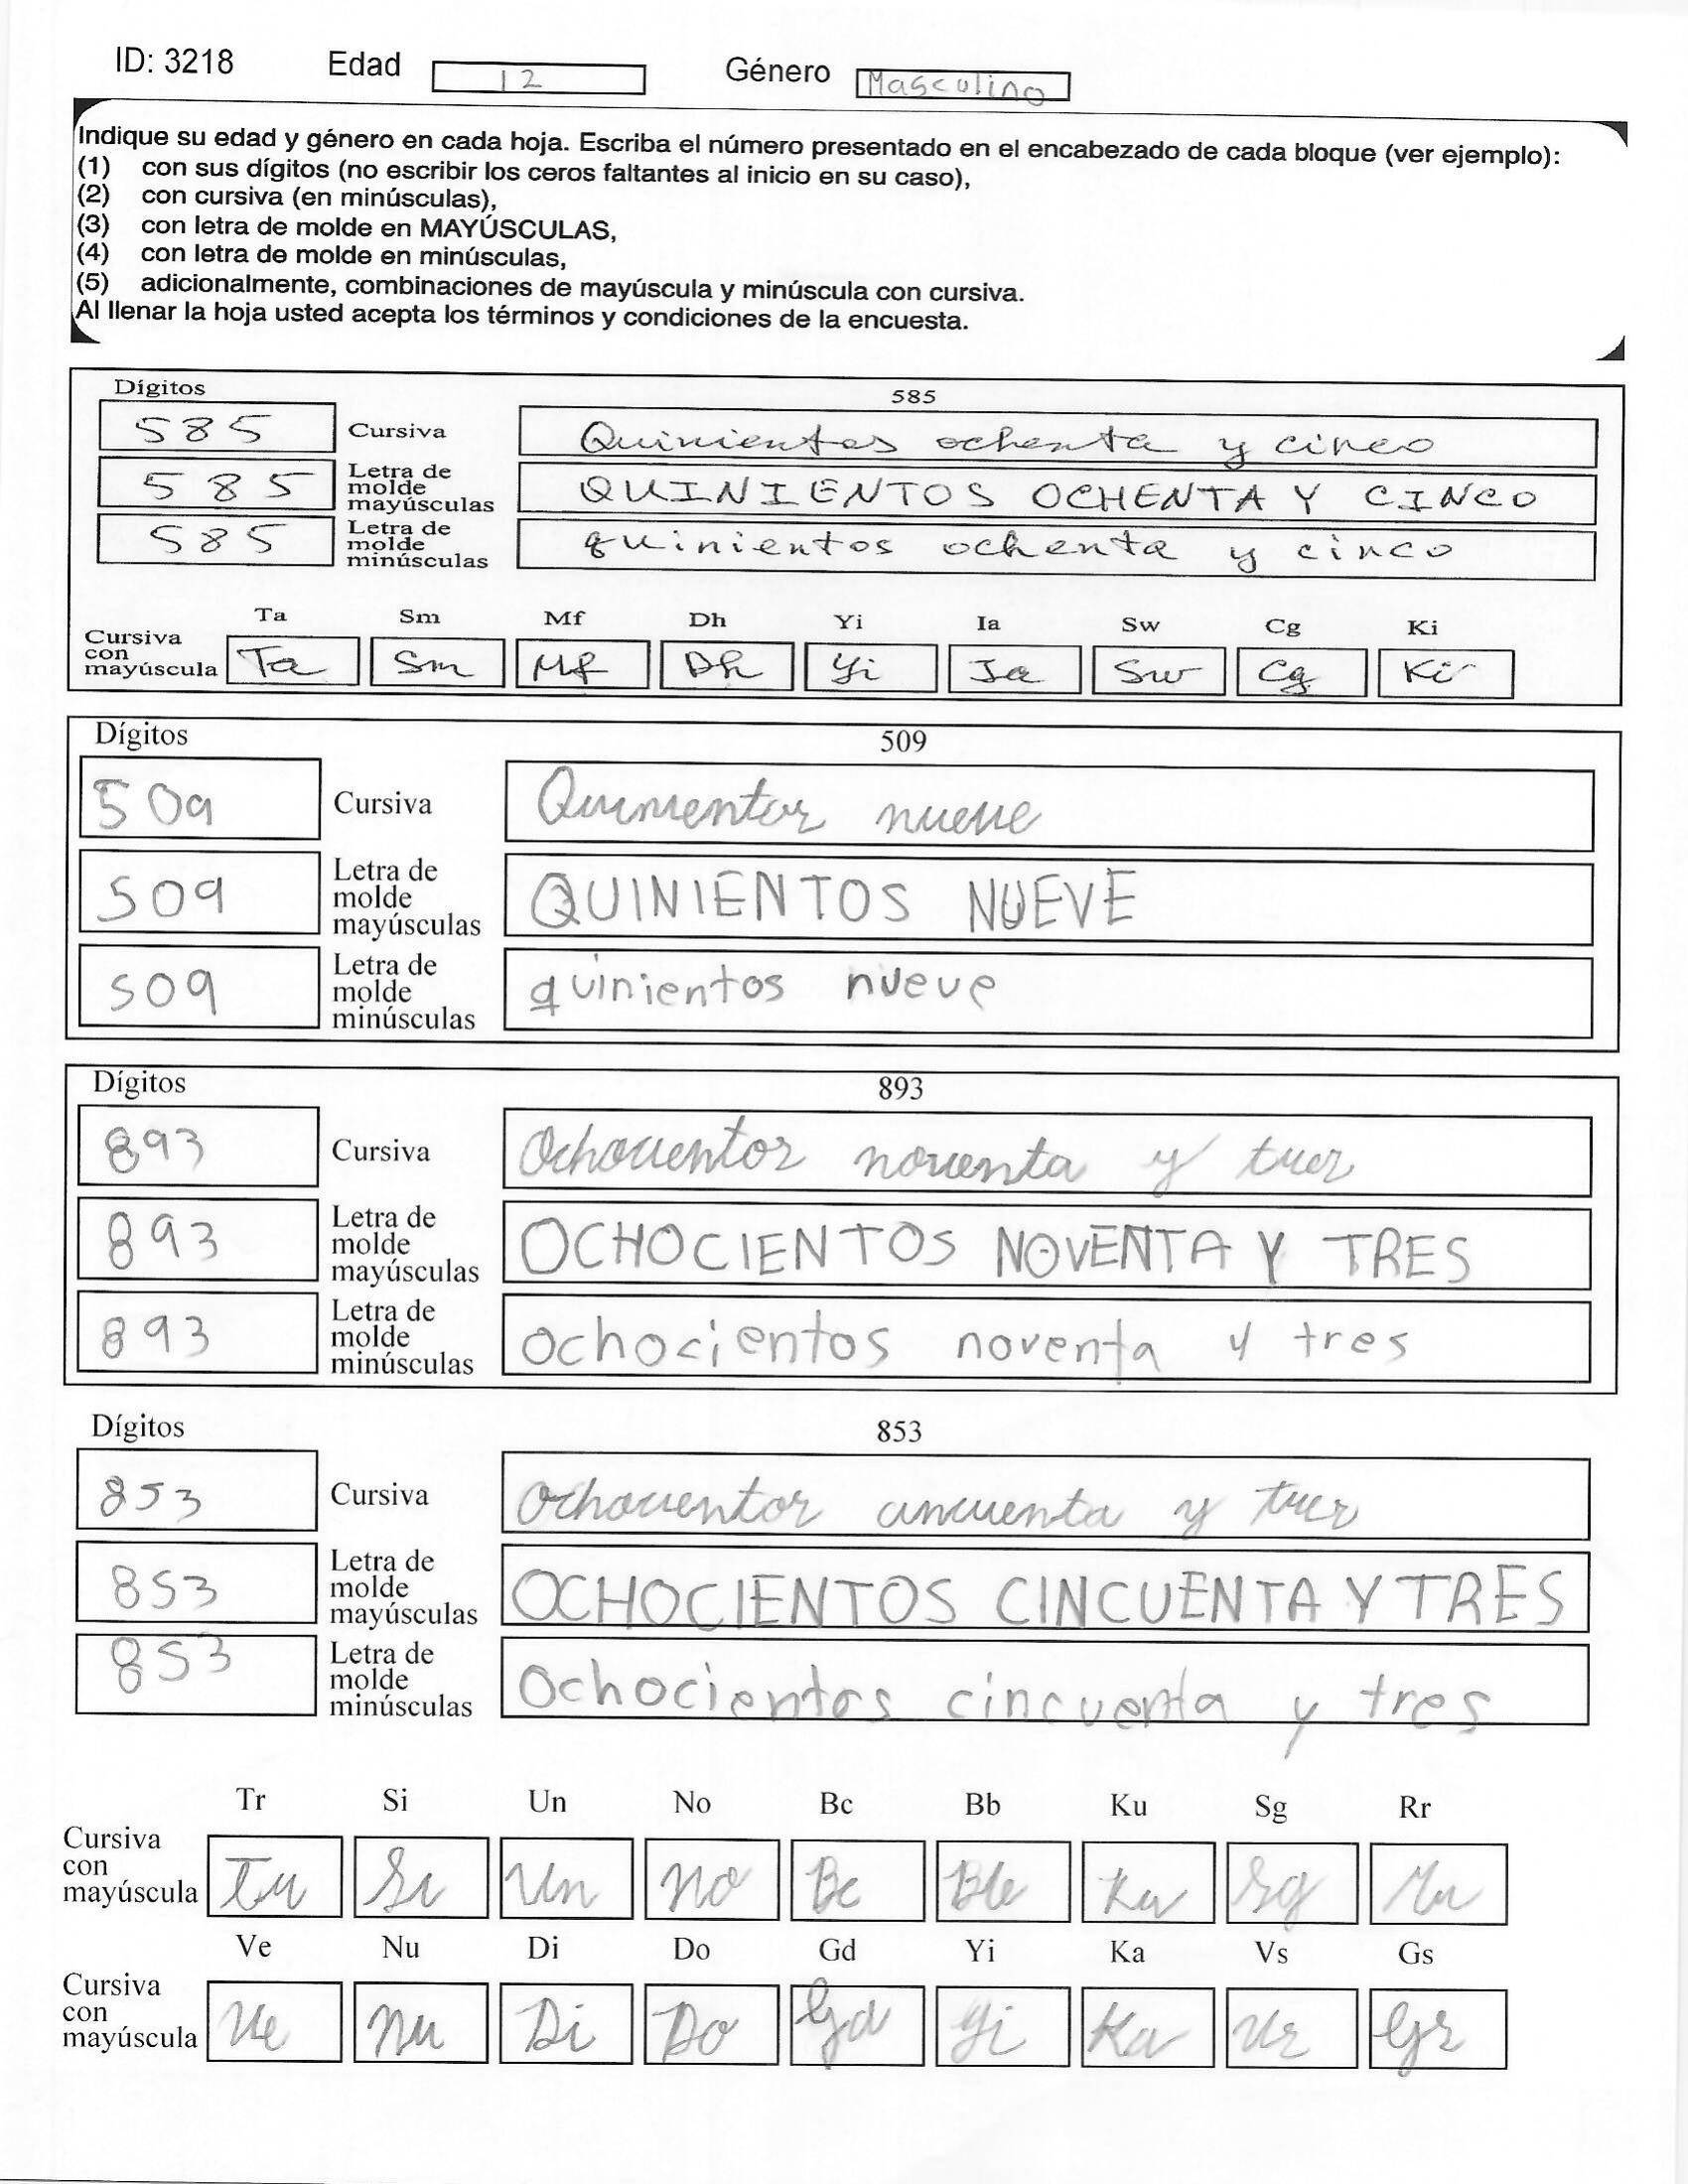 ID: 3218 Edad 12 Género Masculino
Indique su edad y género en cada hoja. Escriba el número presentado en el encabezado de cada bloque (ver ejemplo):
(1) con sus dígitos (no escribir los ceros faltantes al inicio en su caso),
(2) con cursiva (en minúsculas),
(3) con letra de molde en MAYÚSCULAS,
(4) con letra de molde en minúsculas,
(5) adicionalmente, combinaciones de mayúscula y minúscula con cursiva.
Al llenar la hoja usted acepta los términos y condiciones de la encuesta.
Dígitos 585
585 Cursiva Quinientos ochenta y cinco
585 Letra de molde mayúsculas QUINIENTOS OCHENTA Y CINCO
585 Letra de molde minúsculas quinientos ochenta y cinco
Ta Sm Mf Dh Yi Ia Sw Cg Ki
Cursiva con mayúscula Ta Sm Mf Dh Yi Ia Sw Cg Ki
Dígitos 509
509 Cursiva Quinientos nueve
509 Letra de molde mayúsculas QUINIENTOS NUEVE
509 Letra de molde minúsculas quinientos nueve
Dígitos 893
893 Cursiva Ochocientos noventa y tres
893 Letra de molde mayúsculas OCHOCIENTOS NOVENTA Y TRES
893 Letra de molde minúsculas ochocientos noventa y tres
Dígitos 853
853 Cursiva Ochocientos cincuenta y tres
853 Letra de molde mayúsculas OCHOCIENTOS CINCUENTA Y TRES
853 Letra de molde minúsculas Ochocientos cincuenta y tres
Tr Si Un No Bc Bb Ku Sg Rr
Cursiva con mayúscula Tr Si Un No Bc Bb Ku Sg Rr
Ve Nu Di Do Gd Yi Ka Vs Gs
Cursiva con mayúscula Ve Nu Di Do Gd Yi Ka Vs Gs